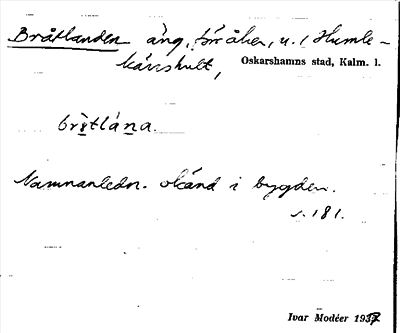 Bråtlanden äng, förr åker, u. / Humle-
kärrshult, Oskarshamns stad, Kalm. l.
brò̤tlána.
Namnanledn. okänd i bygden.
s. 181.
Ivar Modéer 1937